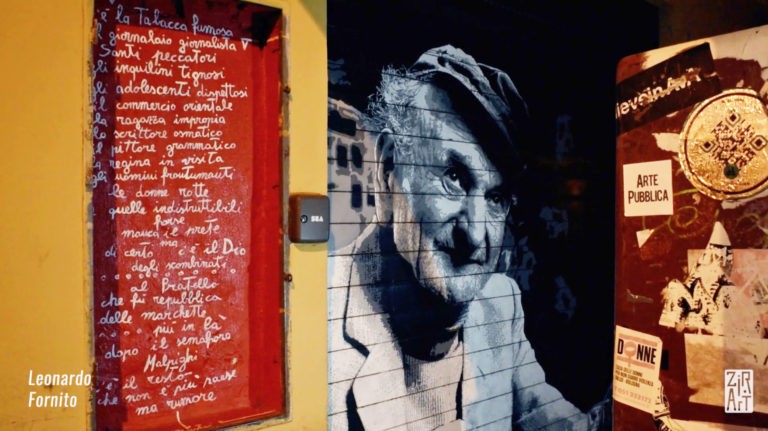 c'è la Tabacca fumosa
il giornalaio giornalista
Santi peccatori
gli inquilini tignosi
gli adolescenti dispettosi
il commercio orientale
la ragazza impropia
lo scrittore osmatico
il pittore grammatico
la regina in visita
gli uomini frantumanti
le donne rotte
e quelle indistruttibili
forse
manca il prete
ma
di certo c'è il Dio
degli scombinati
al Pratello
che fu repubblica
delle marchette
più in là
dopo il semaforo
Malpighi
è il resto
che non è più paese
ma rumore
SEA
ARTE
PUBBLICA
DONNE
Leonardo
Fornito
ZIR
ART